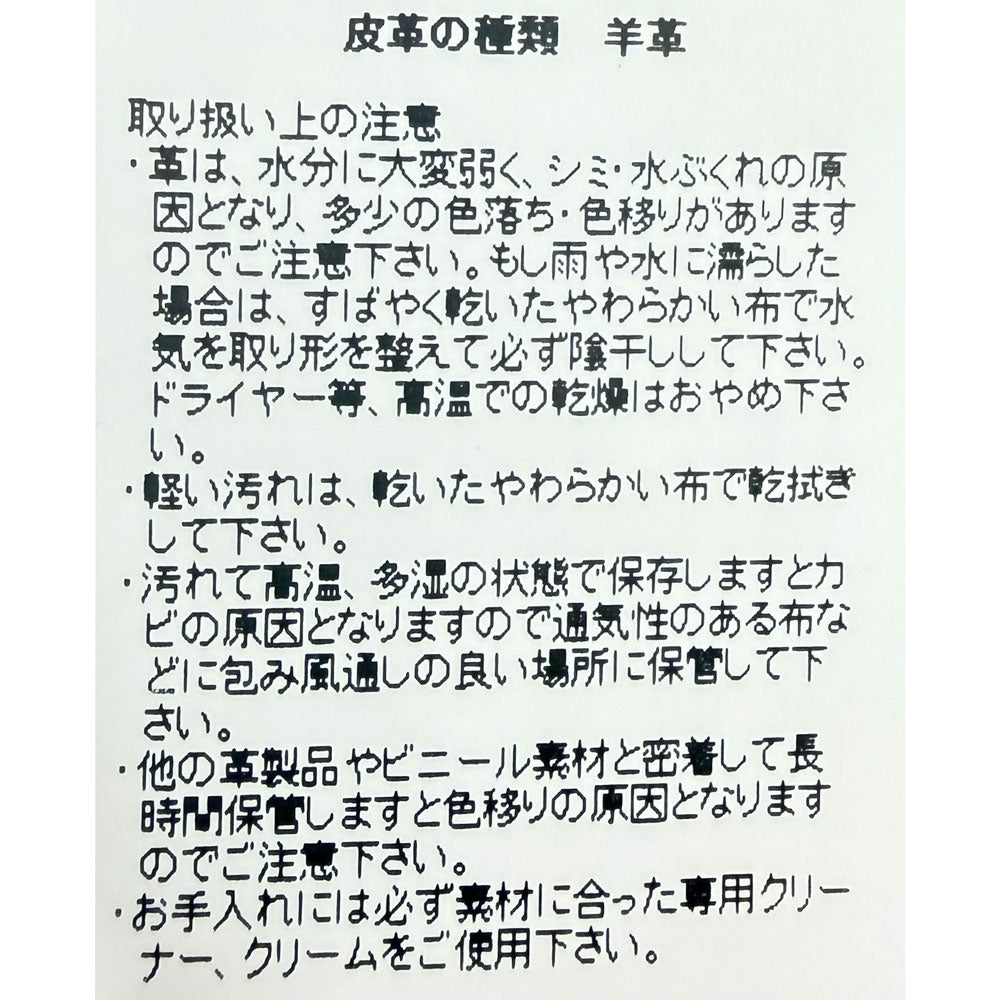 皮革の種類　羊革
取り扱い上の注意
・革は、水分に大変弱く、シミ・水ぶくれの原
因となり、多少の色落ち・色移りがあります
のでご注意下さい。もし雨や水に濡らした
場合は、すばやく乾いたやわらかい布で水
気を取り形を整えて必ず陰干しして下さい。
ドライヤー等、高温での乾燥はおやめ下さ
い。
・軽い汚れは、乾いたやわらかい布で乾拭き
して下さい。
・汚れて高温、多湿の状態で保存しますとカ
ビの原因となりますので通気性のある布な
どに包み風通しの良い場所に保管して下
さい。
・他の革製品やビニール素材と密着して長
時間保管しますと色移りの原因となります
のでご注意下さい。
・お手入れには必ず素材に合った専用クリー
ナー、クリームをご使用下さい。